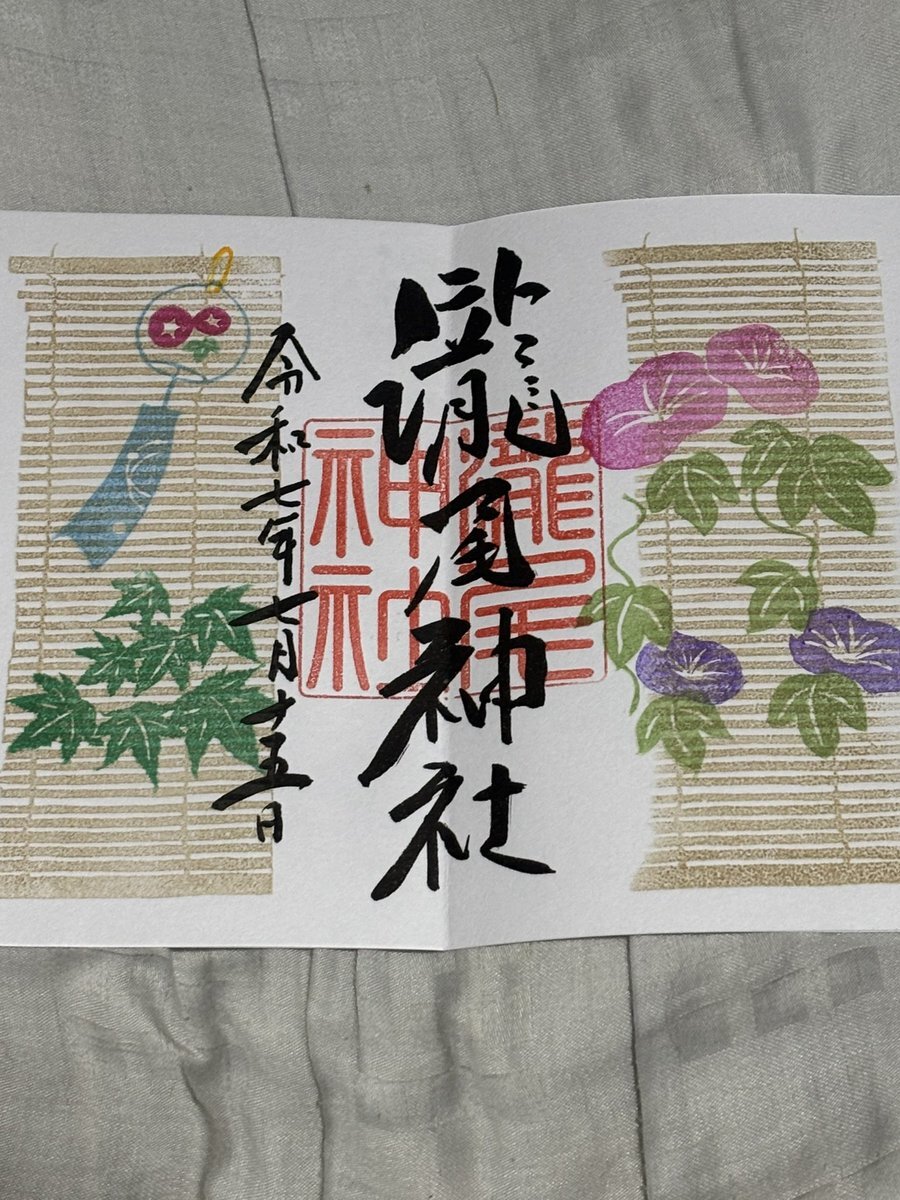 瀧尾神社
瀧尾
神社
令和七年七月十五日